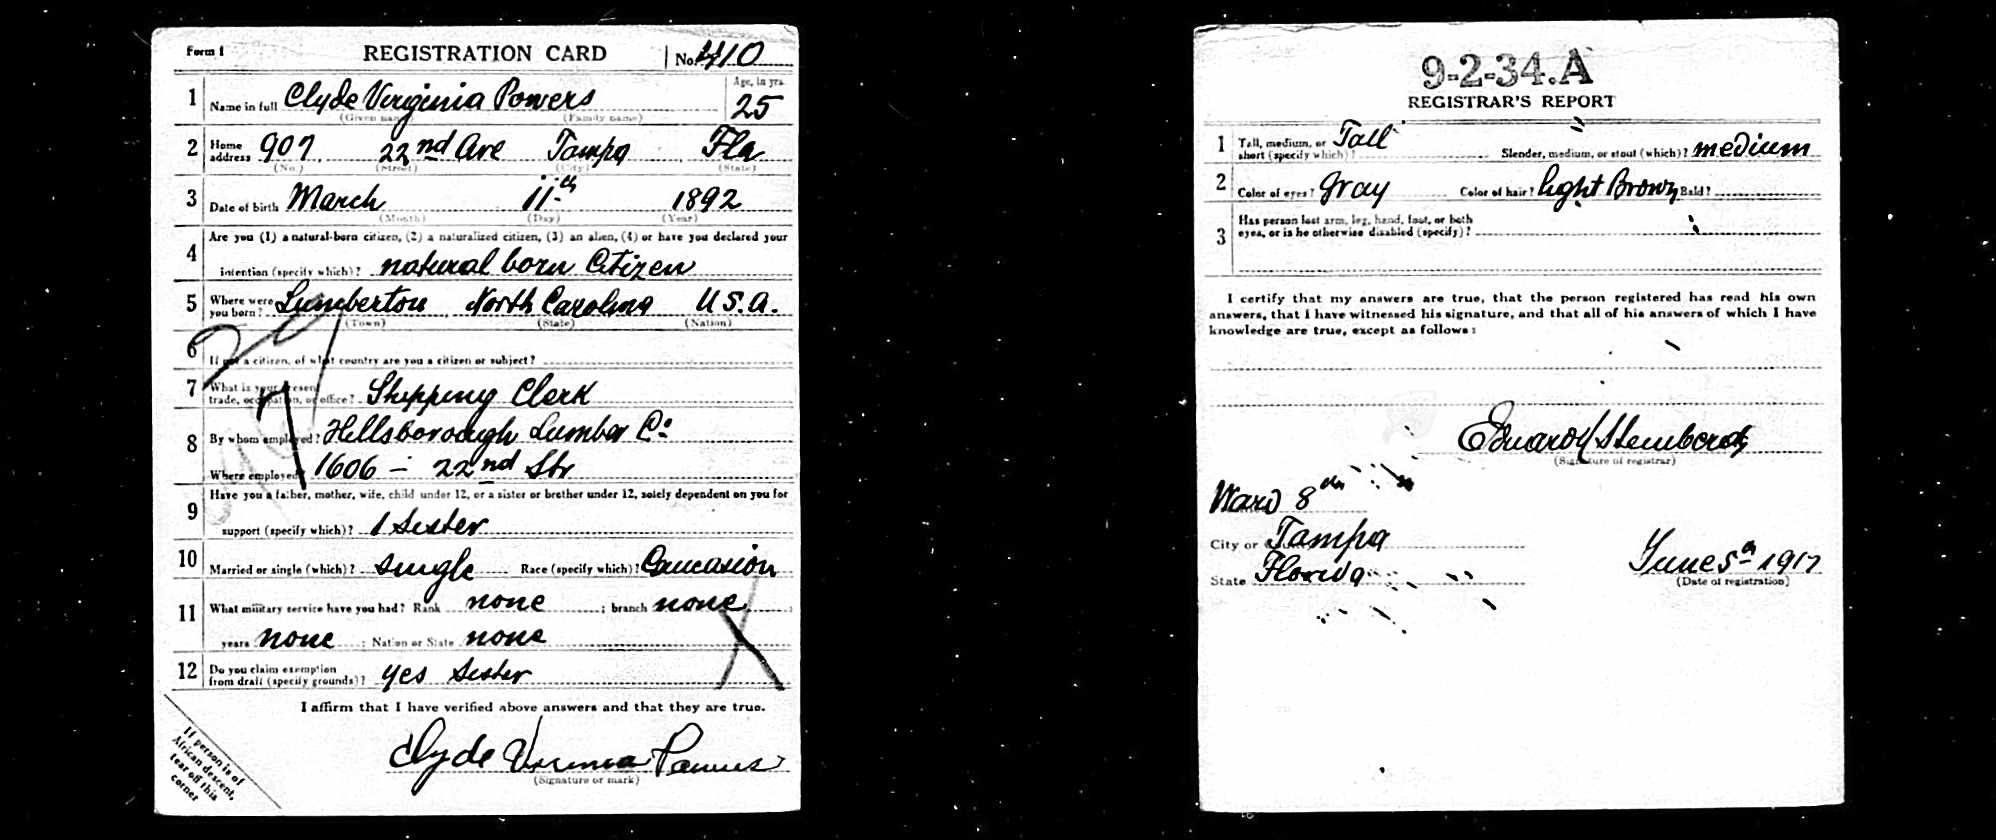 Form 1 REGISTRATION CARD No. 410
1 Name in full Clyde Virginia Powers Age, in yrs. 25
(Given name) (Family name)
2 Home address 907 22nd Ave Tampa Fla
(No.) (Street) (City) (State)
3 Date of birth March 11th 1892
(Month) (Day) (Year)
4 Are you (1) a natural-born citizen, (2) a naturalized citizen, (3) an alien, (4) or have you declared your
intention (specify which)? natural born Citizen
5 Where were you born? Lumberton North Carolina U.S.A.
(Town) (State) (Nation)
6 If not a citizen, of what country are you a citizen or subject?
7 What is your present trade, occupation, or office? Shipping Clerk
8 By whom employed? Hillsborough Lumber Co
Where employed? 1606 - 22nd Str
9 Have you a father, mother, wife, child under 12, or a sister or brother under 12, solely dependent on you for
support (specify which)? 1 Sister
10 Married or single (which)? single Race (specify which)? Caucasion
11 What military service have you had? Rank none ; branch none ;
years none ; Nation or State none
12 Do you claim exemption from draft (specify grounds)? yes Sister
I affirm that I have verified above answers and that they are true.
Clyde Virginia Powers
(Signature or mark)
If person is of
African descent,
tear off this
corner
9-2-34.A
REGISTRAR'S REPORT
1 Tall, medium, or short (specify which)? Tall Slender, medium, or stout (which)? medium
2 Color of eyes? Gray Color of hair? light Brown Bald?
3 Has person lost arm, leg, hand, foot, or both
eyes, or is he otherwise disabled (specify)?
I certify that my answers are true, that the person registered has read his own
answers, that I have witnessed his signature, and that all of his answers of which I have
knowledge are true, except as follows:
Edward
(Signature of registrar)
Ward 8th
City or County Tampa
State Florida
June 5th 1917
(Date of registration)